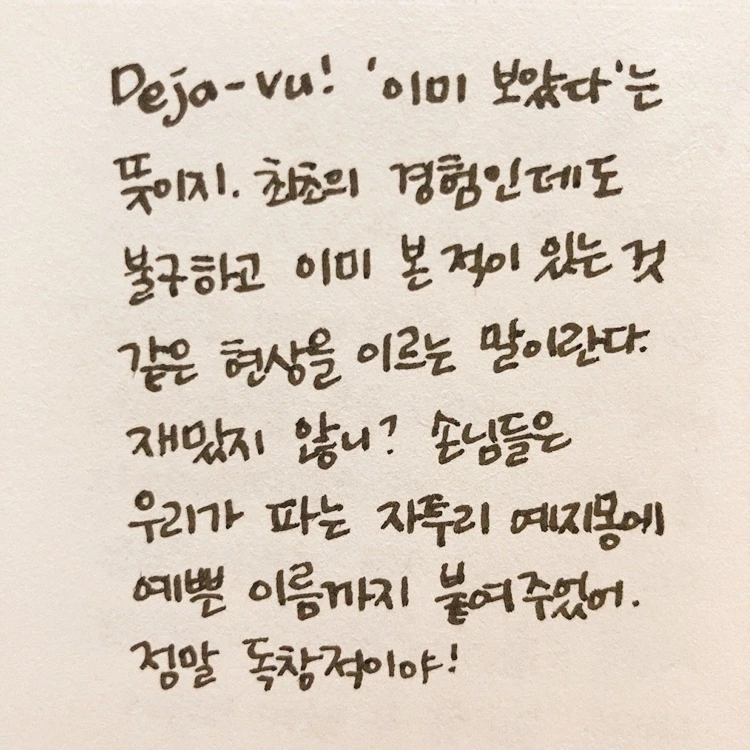 Deja-vu! '이미 보았다'는
뜻이지. 최초의 경험인데도
불구하고 이미 본 적이 있는 것
같은 현상을 이르는 말이란다.
재밌지 않니? 손님들은
우리가 파는 자투리 예지몽에
예쁜 이름까지 붙여주었어.
정말 독창적이야!